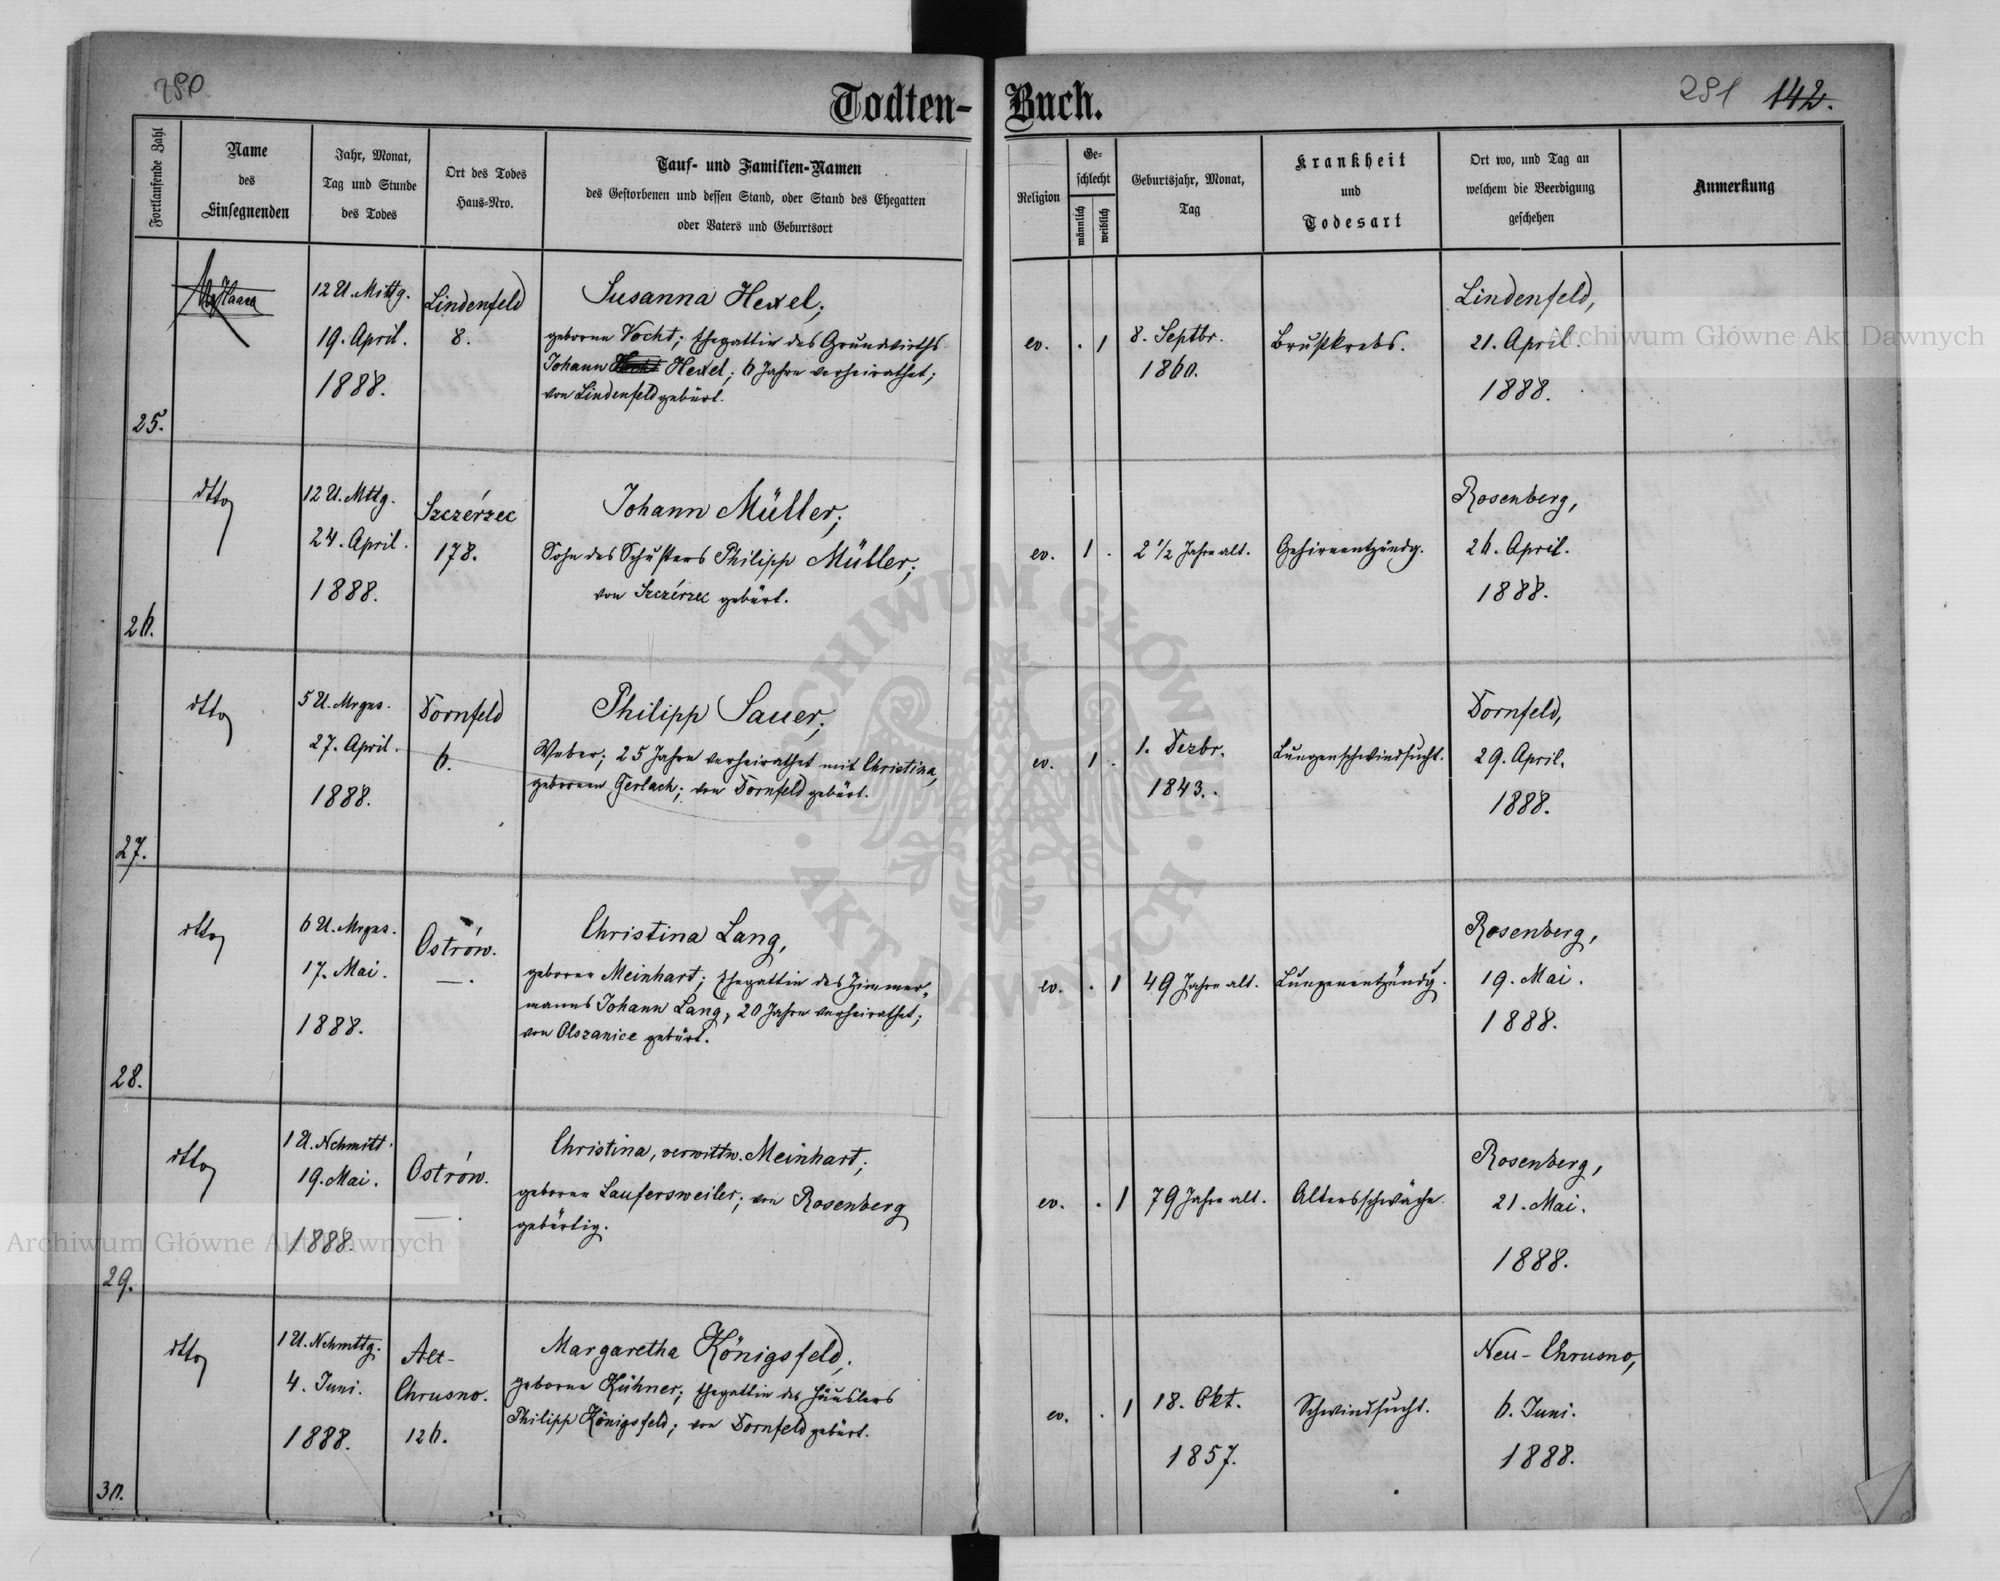 290
Todten-
Buch.
291 142.
Fortlaufende Zahl
Name
des
Einsegnenden
Jahr, Monat,
Tag und Stunde
des Todes
Ort des Todes
Haus-Nro.
Tauf- und Familien-Namen
des Gestorbenen und dessen Stand, oder Stand des Ehegatten
oder Vaters und Geburtsort
Religion
Ge-
schlecht
männlich
weiblich
Geburtsjahr, Monat,
Tag
Krankheit
und
Todesart
Ort wo, und Tag an
welchem die Beerdigung
geschehen
Anmerkung
25.
12 U. Mittg.
19. April.
1888.
Lindenfeld
8.
Susanna Hexel;
geborne Vocht; Ehegattin des Grundwirths
Johann Hexel; 6 Jahre verheirathet;
von Lindenfeld gebürt.
ev.
. 1
8. Septbr.
1860.
Brustkrebs.
Lindenfeld,
21. April.
1888.
26.
dtto
12 U. Mttg.
24. April.
1888.
Szczérzec
178.
Johann Müller;
Sohn des Schusters Philipp Müller;
von Szczérzec gebürt.
ev.
1 .
2 1/2 Jahre alt.
Gehirnentzündg.
Rosenberg,
26. April.
1888.
27.
dtto
5 U. Mrgns.
27. April.
1888.
Dornfeld
6.
Philipp Sauer;
Weber; 25 Jahre verheirathet mit Christina,
geborenen Gerlach; von Dornfeld gebürt.
ev.
1 .
1. Dezbr.
1843.
Lungenschwindsucht.
Dornfeld,
29. April.
1888.
28.
dtto
6 U. Mrgns.
17. Mai.
1888.
Ostrów.
—.
Christina Lang,
geborne Meinhart; Ehegattin des Zimmer-
manns Johann Lang, 20 Jahre verheirathet;
von Olszanice gebürt.
ev.
. 1
49 Jahre alt.
Lungenentzündg.
Rosenberg,
19. Mai.
1888.
29.
dtto
1 U. Nchmitt.
19. Mai.
1888.
Ostrów.
—.
Christina, verwittw. Meinhart;
geborne Laufersweiler; von Rosenberg
gebürtig.
ev.
. 1
79 Jahre alt.
Altersschwäche.
Rosenberg,
21. Mai.
1888.
30.
dtto
1 U. Nchmttg.
4. Juni.
1888.
Alt-
Chrusno.
126.
Margaretha Königsfeld;
geborne Kühner; Ehegattin des Häuslers
Philipp Königsfeld; von Dornfeld gebürt.
ev.
. 1
18. Okt.
1857.
Schwindsucht.
Neu-Chrusno,
6. Juni.
1888.
Archiwum Główne Akt Dawnych
Archiwum Główne Akt Dawnych
ARCHIWUM GŁÓWNE
· AKT DAWNYCH ·